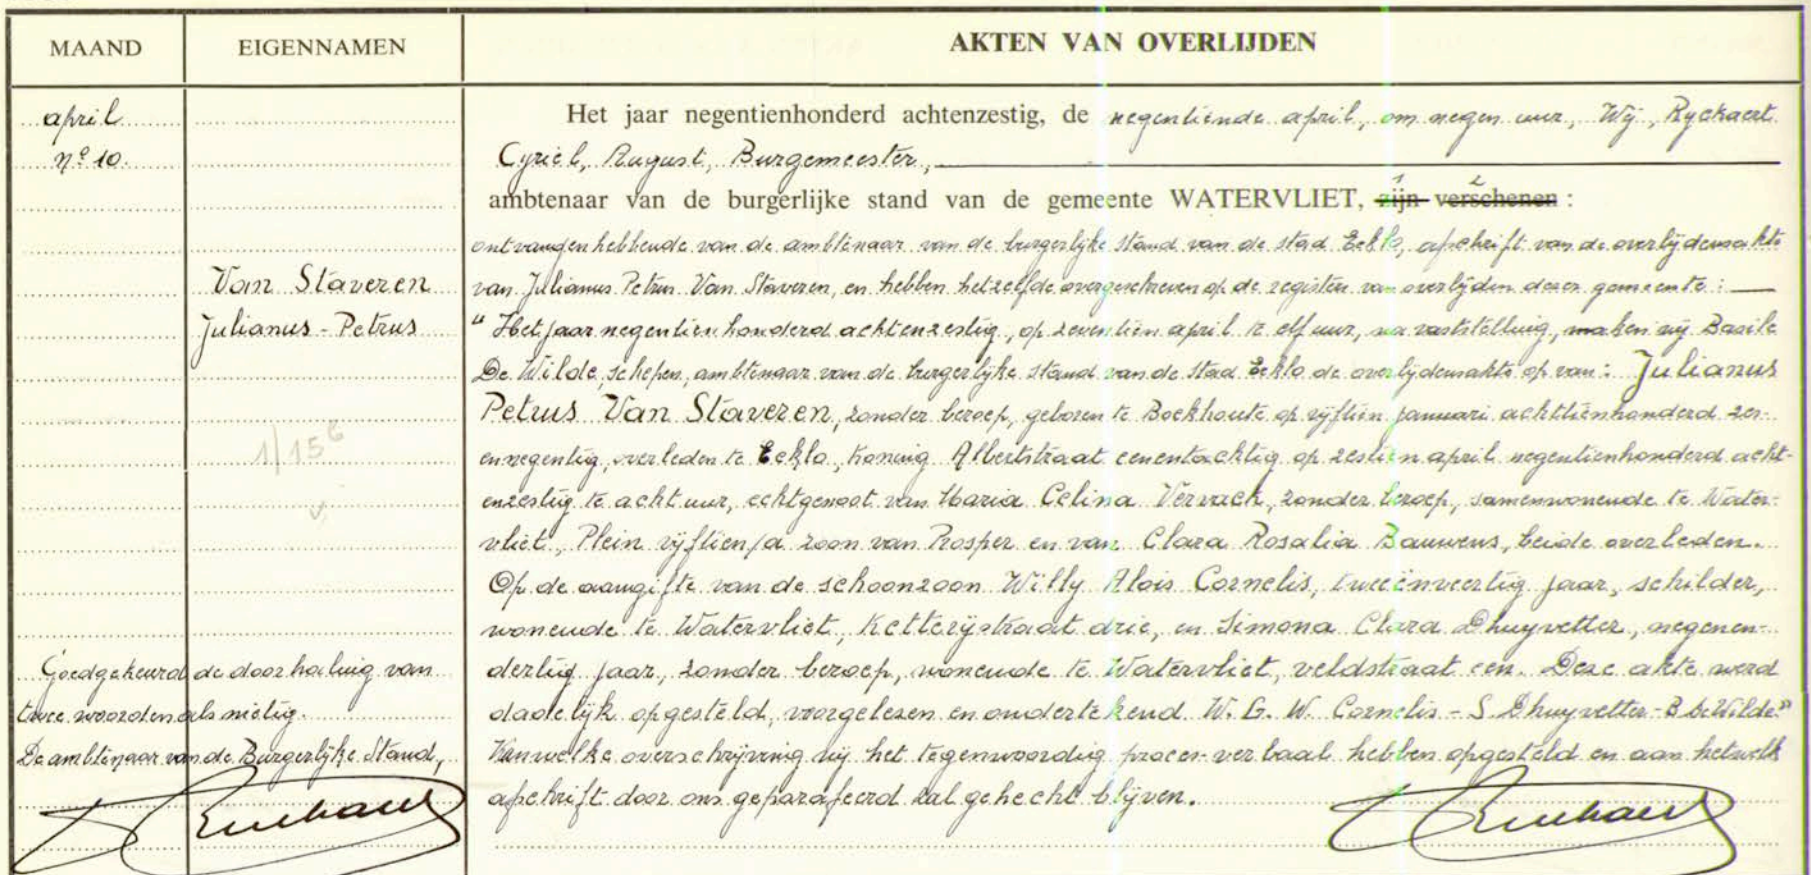 MAAND
EIGENNAMEN
AKTEN VAN OVERLIJDEN
april
nº 10.
Van Staveren
Julianus-Petrus
1/156
v
Goedgekeurd de doorhaling van
twee woorden als nietig.
De ambtenaar van de Burgerlijke Stand,
Het jaar negentienhonderd achtenzestig, de negentiende april, om negen uur, Wij, Ryckaert
Cyriel, August, Burgemeester,
ambtenaar van de burgerlijke stand van de gemeente WATERVLIET, zijn verschenen :
ontvangen hebbende van de ambtenaar van de burgerlijke stand van de stad Eeklo, afschrift van de overlijdensakte
van Julianus Petrus Van Staveren, en hebben hetzelfde overgeschreven op de registers van overlijden dezer gemeente :
"Het jaar negentienhonderd achtenzestig, op zeventien april te elf uur, na vaststelling, maken wij Basile
De Wilde, schepen, ambtenaar van de burgerlijke stand van de stad Eeklo de overlijdensakte op van : Julianus
Petrus Van Staveren, zonder beroep, geboren te Boekhoute op vijftien januari achttienhonderd zes-
ennegentig, overleden te Eeklo, Koning Albertstraat eenentachtig op zestien april negentienhonderd acht-
enzestig te acht uur, echtgenoot van Maria Celina Vervaek, zonder beroep, samenwonende te Water-
vliet, Plein vijftien/a zoon van Prosper en van Clara Rosalia Bauwens, beide overleden.
Op de aangifte van de schoonzoon Willy Alois Cornelis, tweeënveertig jaar, schilder,
wonende te Watervliet, Ketterijstraat drie, en Simona Clara Dhuyvetter, negenen-
dertig jaar, zonder beroep, wonende te Watervliet, veldstraat een. Deze akte werd
dadelijk opgesteld, voorgelezen en ondertekend. W. G. W. Cornelis - S. Dhuyvetter - B. De Wilde."
Van welke overschrijving wij het tegenwoordig proces-verbaal hebben opgesteld en aan hetwelk
afschrift door ons geparafeerd zal gehecht blijven.